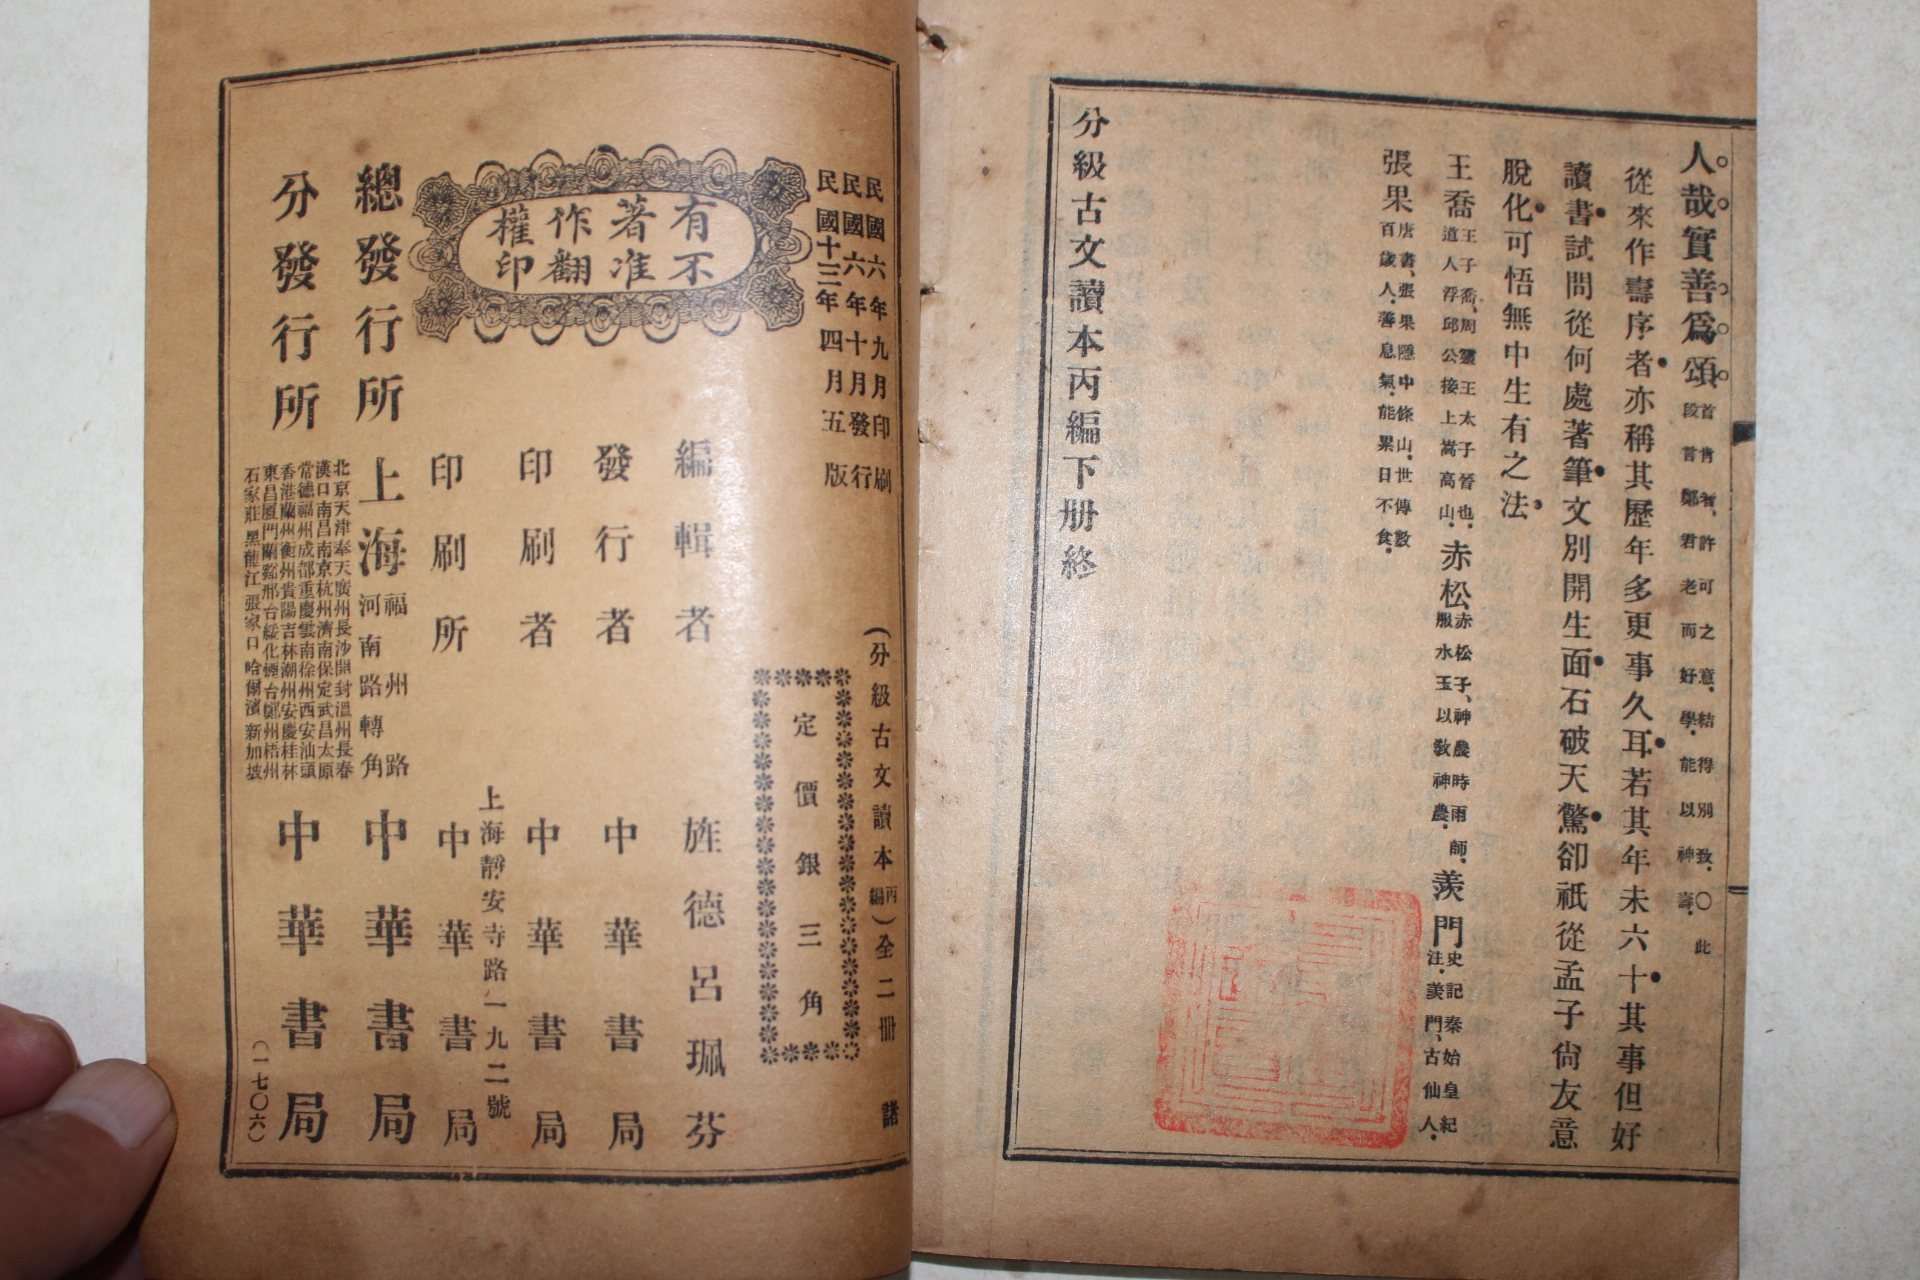 人哉實善爲頌首肯者、許可之意、結得別致、〇此段言鄭君老而好學、能以神壽、
從來作壽序者亦稱其歷年多更事久耳若其年未六十其事但好
讀書試問從何處著筆文別開生面石破天驚卻祇從孟子尙友意
脫化可悟無中生有之法
王喬王子喬、周靈王太子晉也、道人浮邱公接上嵩高山、赤松赤松子、神農時雨師、服水玉以敎神農、羨門史記秦始皇紀注、羨門、古仙人、
張果唐書、張果隱中條山、世傳數百歲人、善息氣、能累日不食、
分級古文讀本丙編下册終
民國六年九月印刷
民國六年十月發行
民國十三年四月五版
有不
著准
作翻
權印
(分級古文讀本丙編)全二册
定價銀三角
編輯者 旌德呂珮芬
發行者 中華書局
印刷者 中華書局
上海靜安寺路一九二號
印刷所 中華書局
總發行所 上海福州路河南路轉角 中華書局
分發行所
北京天津奉天廣州長沙開封溫州長春
漢口南昌南京杭州濟南保定武昌太原
常德福州成都重慶雲南徐州西安汕頭
香港蘭州衡州貴陽吉林潮州安慶桂林
東昌厦門蘭谿邢台綏化煙台鄭州梧州
石家莊黑龍江張家口哈爾濱新加坡
中華書局
(一七〇六)